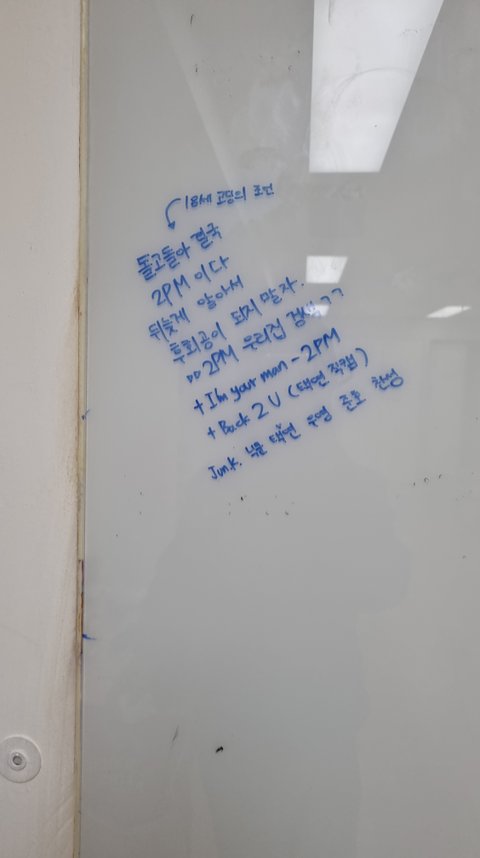 18세 고딩의 조언
돌고돌아 결국
2PM 이다
뒤늦게 알아서
후회공이 되지 말자.
▷▷ 2PM 우리집 검색 ㄱㄱ
+ I'm your man - 2PM
+ Back 2 U (택연 직캠)
Jun.K. 닉쿤 택연 우영 준호 찬성